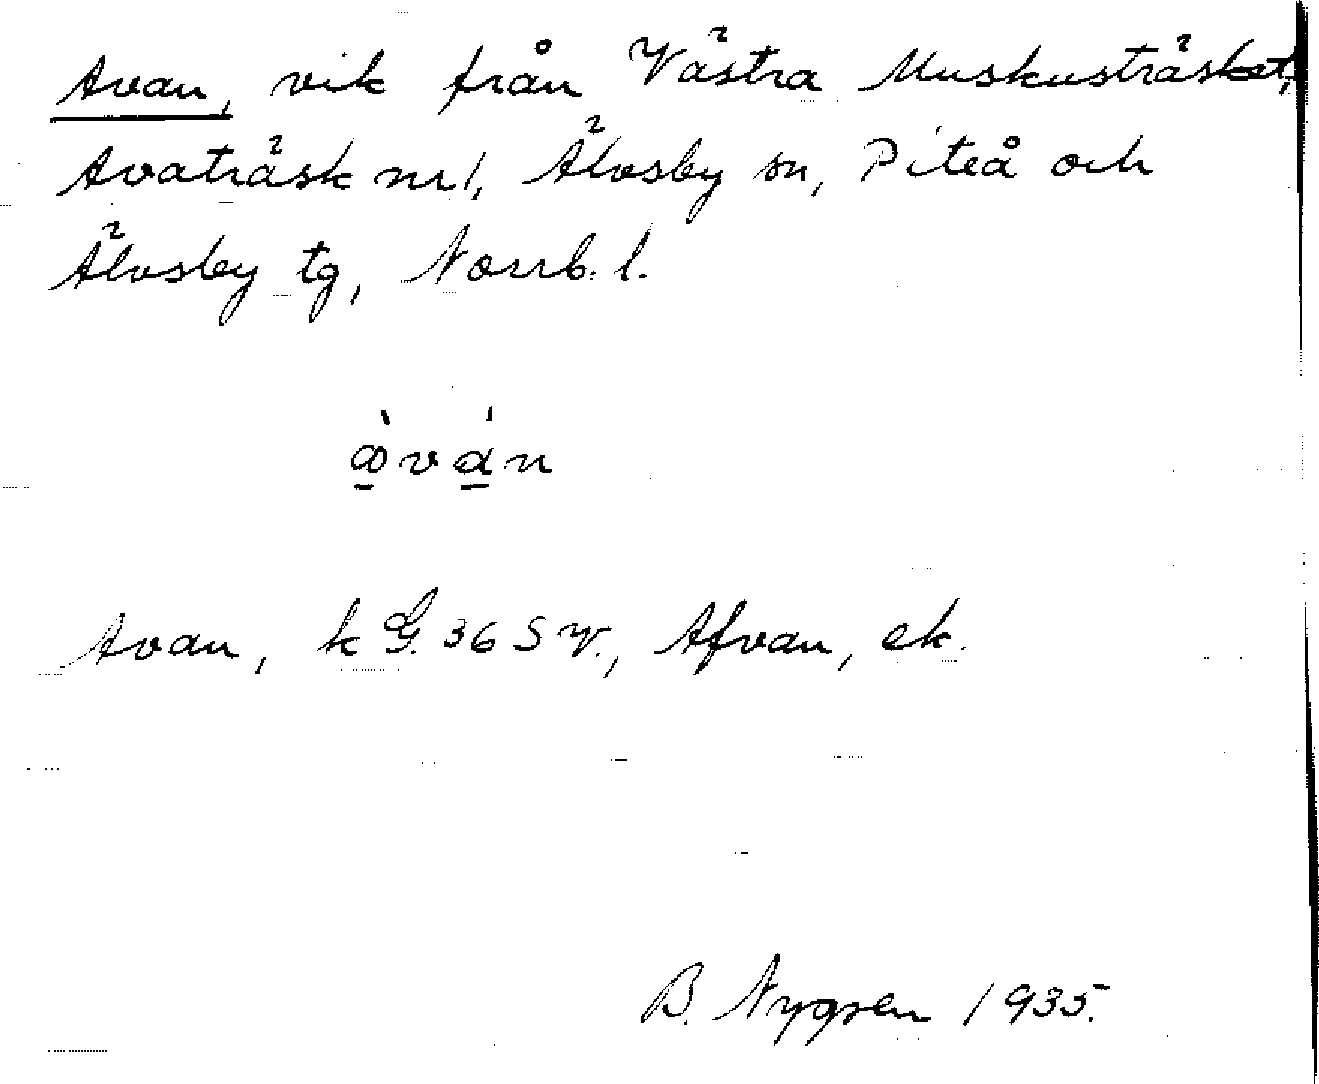 Avan, vik från Västra Muskusträsket,
Avaträsk nr 1, Älvsby sn, Piteå och
Älvsby tg, Norrb. l.
àván
Avan, k G. 36 S V., Afvan, ek.
B. Nygren 1935.